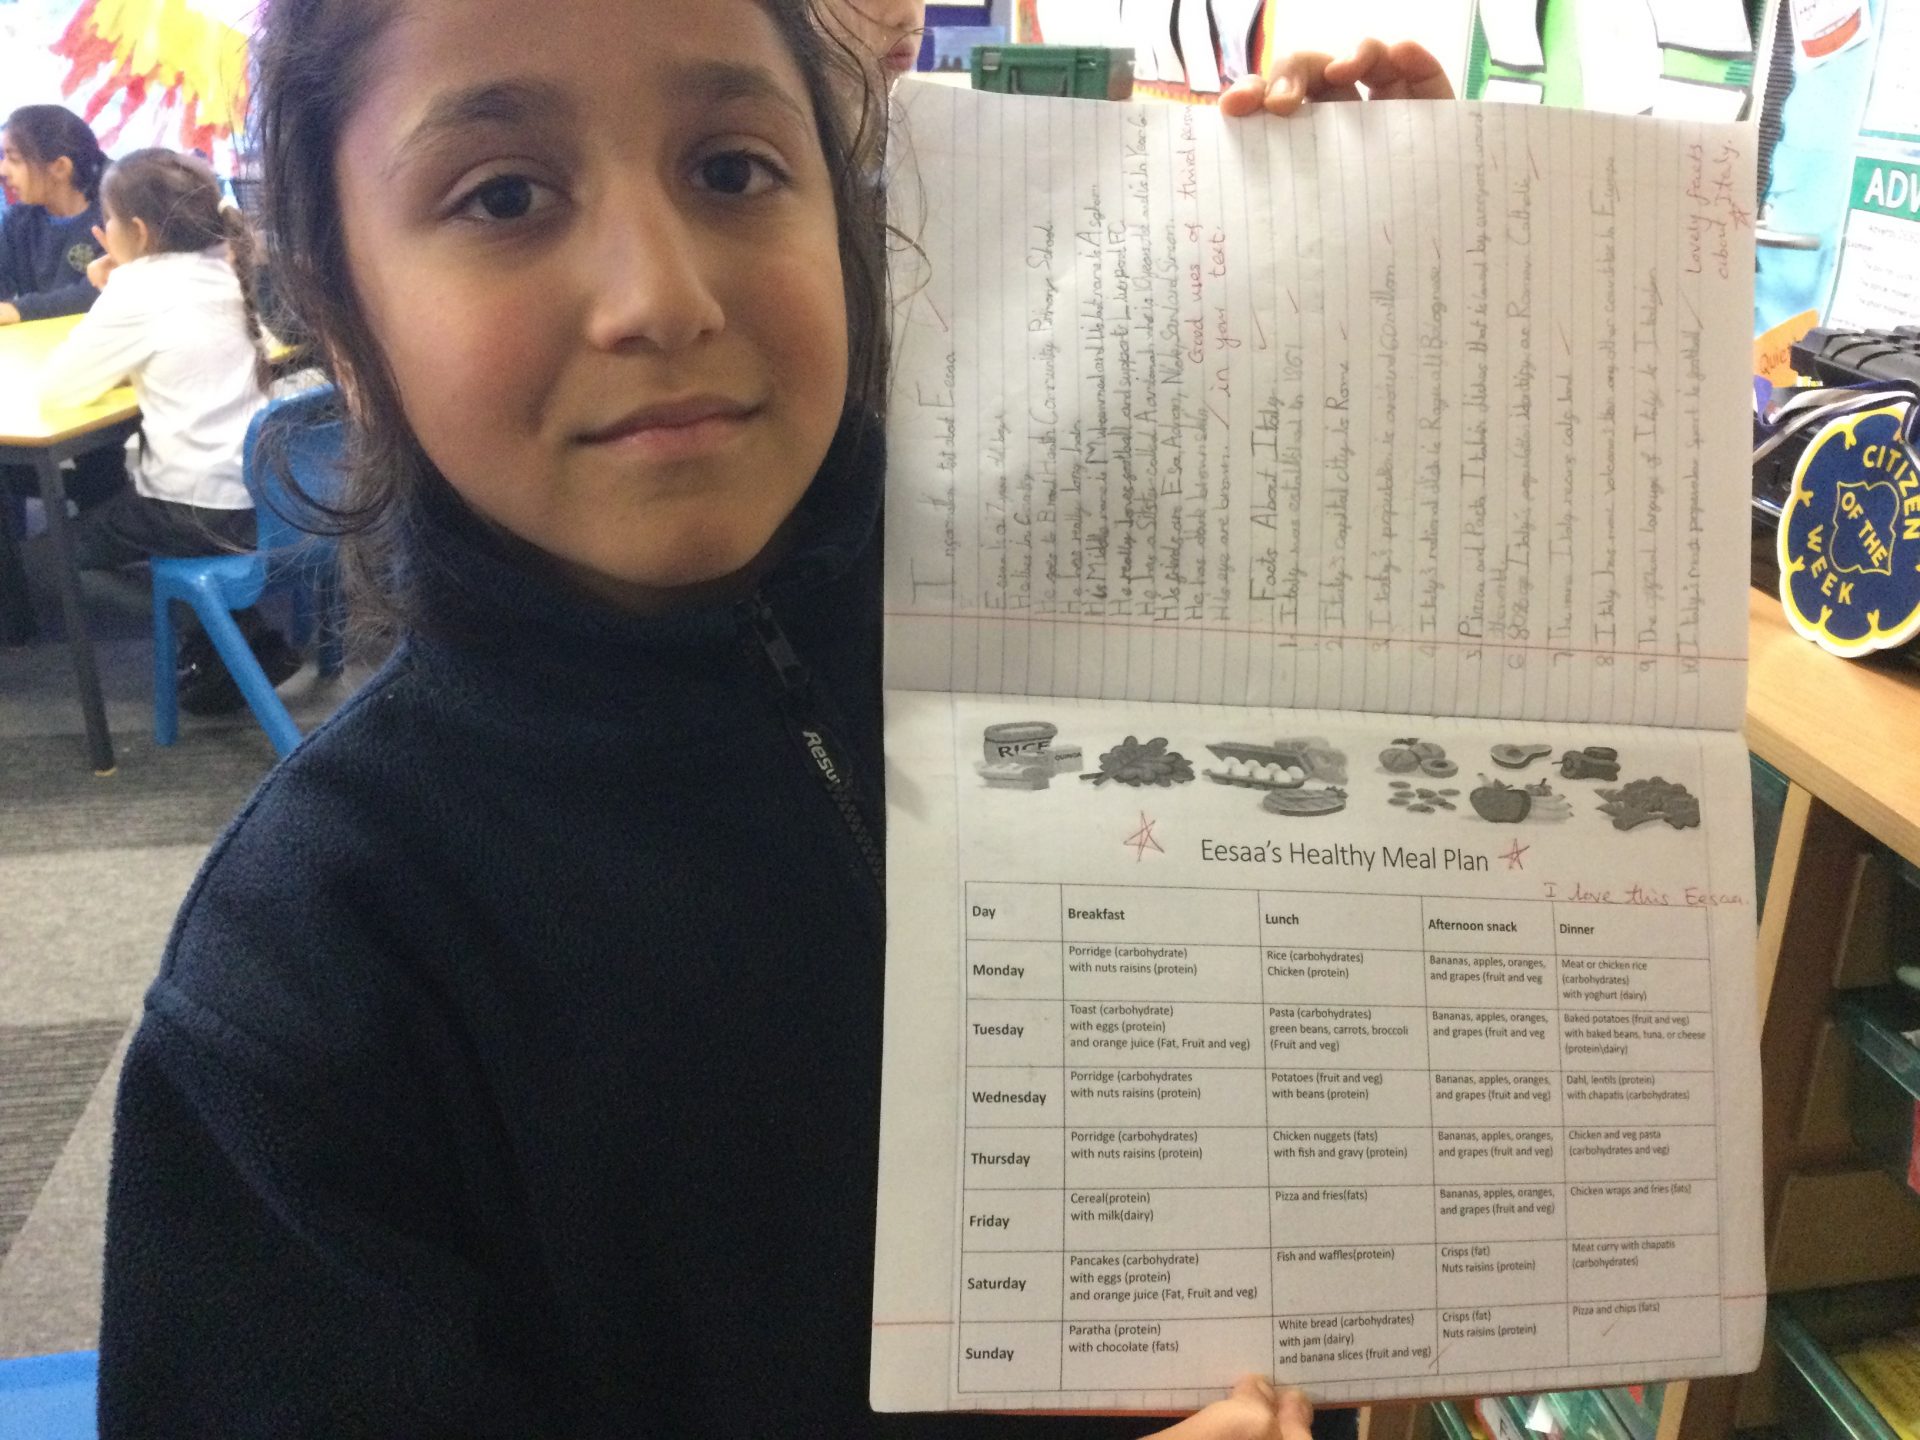 Information bit about Eesaa
Eesaa he is 7 years old boy
He lives in Coventry
He has really long hair
He really loves football and supports Liverpool FC
He has dark brown skin
His eye are brown.
Good uses of third person
in your text.
Facts About Italy.
1. Italy was established in 1861
2 Italy's capital city is Rome
3 Italy's population is around 60 million
4 Italy's national dish is Ragu all Bolognese
5 Pizza and Pasta Italian dishes that is loved by everyone around
the world
6 80% of Italy's population identify as Roman Catholic
7 The name Italy means calf land
8 Italy has more volcano's than any other countries in Europe
9 The official language of Italy is Italian
10 Italy's most popular sport is football
Lovely facts
about Italy.
RICE
QUINOA
Eesaa's Healthy Meal Plan
I love this Eesaa.
Day Breakfast Lunch Afternoon snack Dinner
Monday
Porridge (carbohydrate)
with nuts raisins (protein)
Rice (carbohydrates)
Chicken (protein)
Bananas, apples, oranges,
and grapes (fruit and veg
Meat or chicken rice
(carbohydrates)
with yoghurt (dairy)
Tuesday
Toast (carbohydrate)
with eggs (protein)
and orange juice (Fat, Fruit and veg)
Pasta (carbohydrates)
green beans, carrots, broccoli
(Fruit and veg)
Bananas, apples, oranges,
and grapes (fruit and veg
Baked potatoes (fruit and veg)
with baked beans, tuna, or cheese
(protein\dairy)
Wednesday
Porridge (carbohydrates
with nuts raisins (protein)
Potatoes (fruit and veg)
with beans (protein)
Bananas, apples, oranges,
and grapes (fruit and veg)
Dahl, lentils (protein)
with chapatis (carbohydrates)
Thursday
Porridge (carbohydrates)
with nuts raisins (protein)
Chicken nuggets (fats)
with fish and gravy (protein)
Bananas, apples, oranges,
and grapes (fruit and veg)
Chicken and veg pasta
(carbohydrates and veg)
Friday
Cereal(protein)
with milk(dairy)
Pizza and fries(fats)
Bananas, apples, oranges,
and grapes (fruit and veg)
Chicken wraps and fries (fats)
Saturday
Pancakes (carbohydrate)
with eggs (protein)
and orange juice (Fat, Fruit and veg)
Fish and waffles(protein)
Crisps (fat)
Nuts raisins (protein)
Meat curry with chapatis
(carbohydrates)
Sunday
Paratha (protein)
with chocolate (fats)
White bread (carbohydrates)
with jam (dairy)
and banana slices (fruit and veg)
Crisps (fat)
Nuts raisins (protein)
Pizza and chips (fats)
CITIZEN
OF THE
WEEK